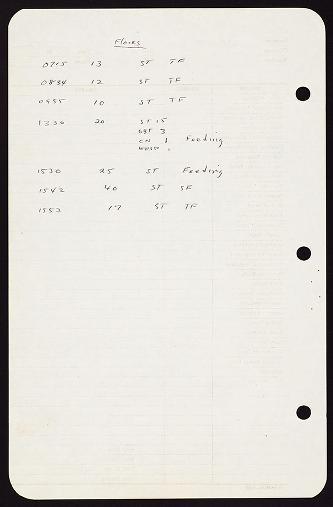 Flocks
0715 13 ST TF
0834 12 ST TF
0955 10 ST TF
1330 20 ST 15
SST 3
CN 1 Feeding
1530 25 ST Feeding
1542 40 ST SF
1552 17 ST TF